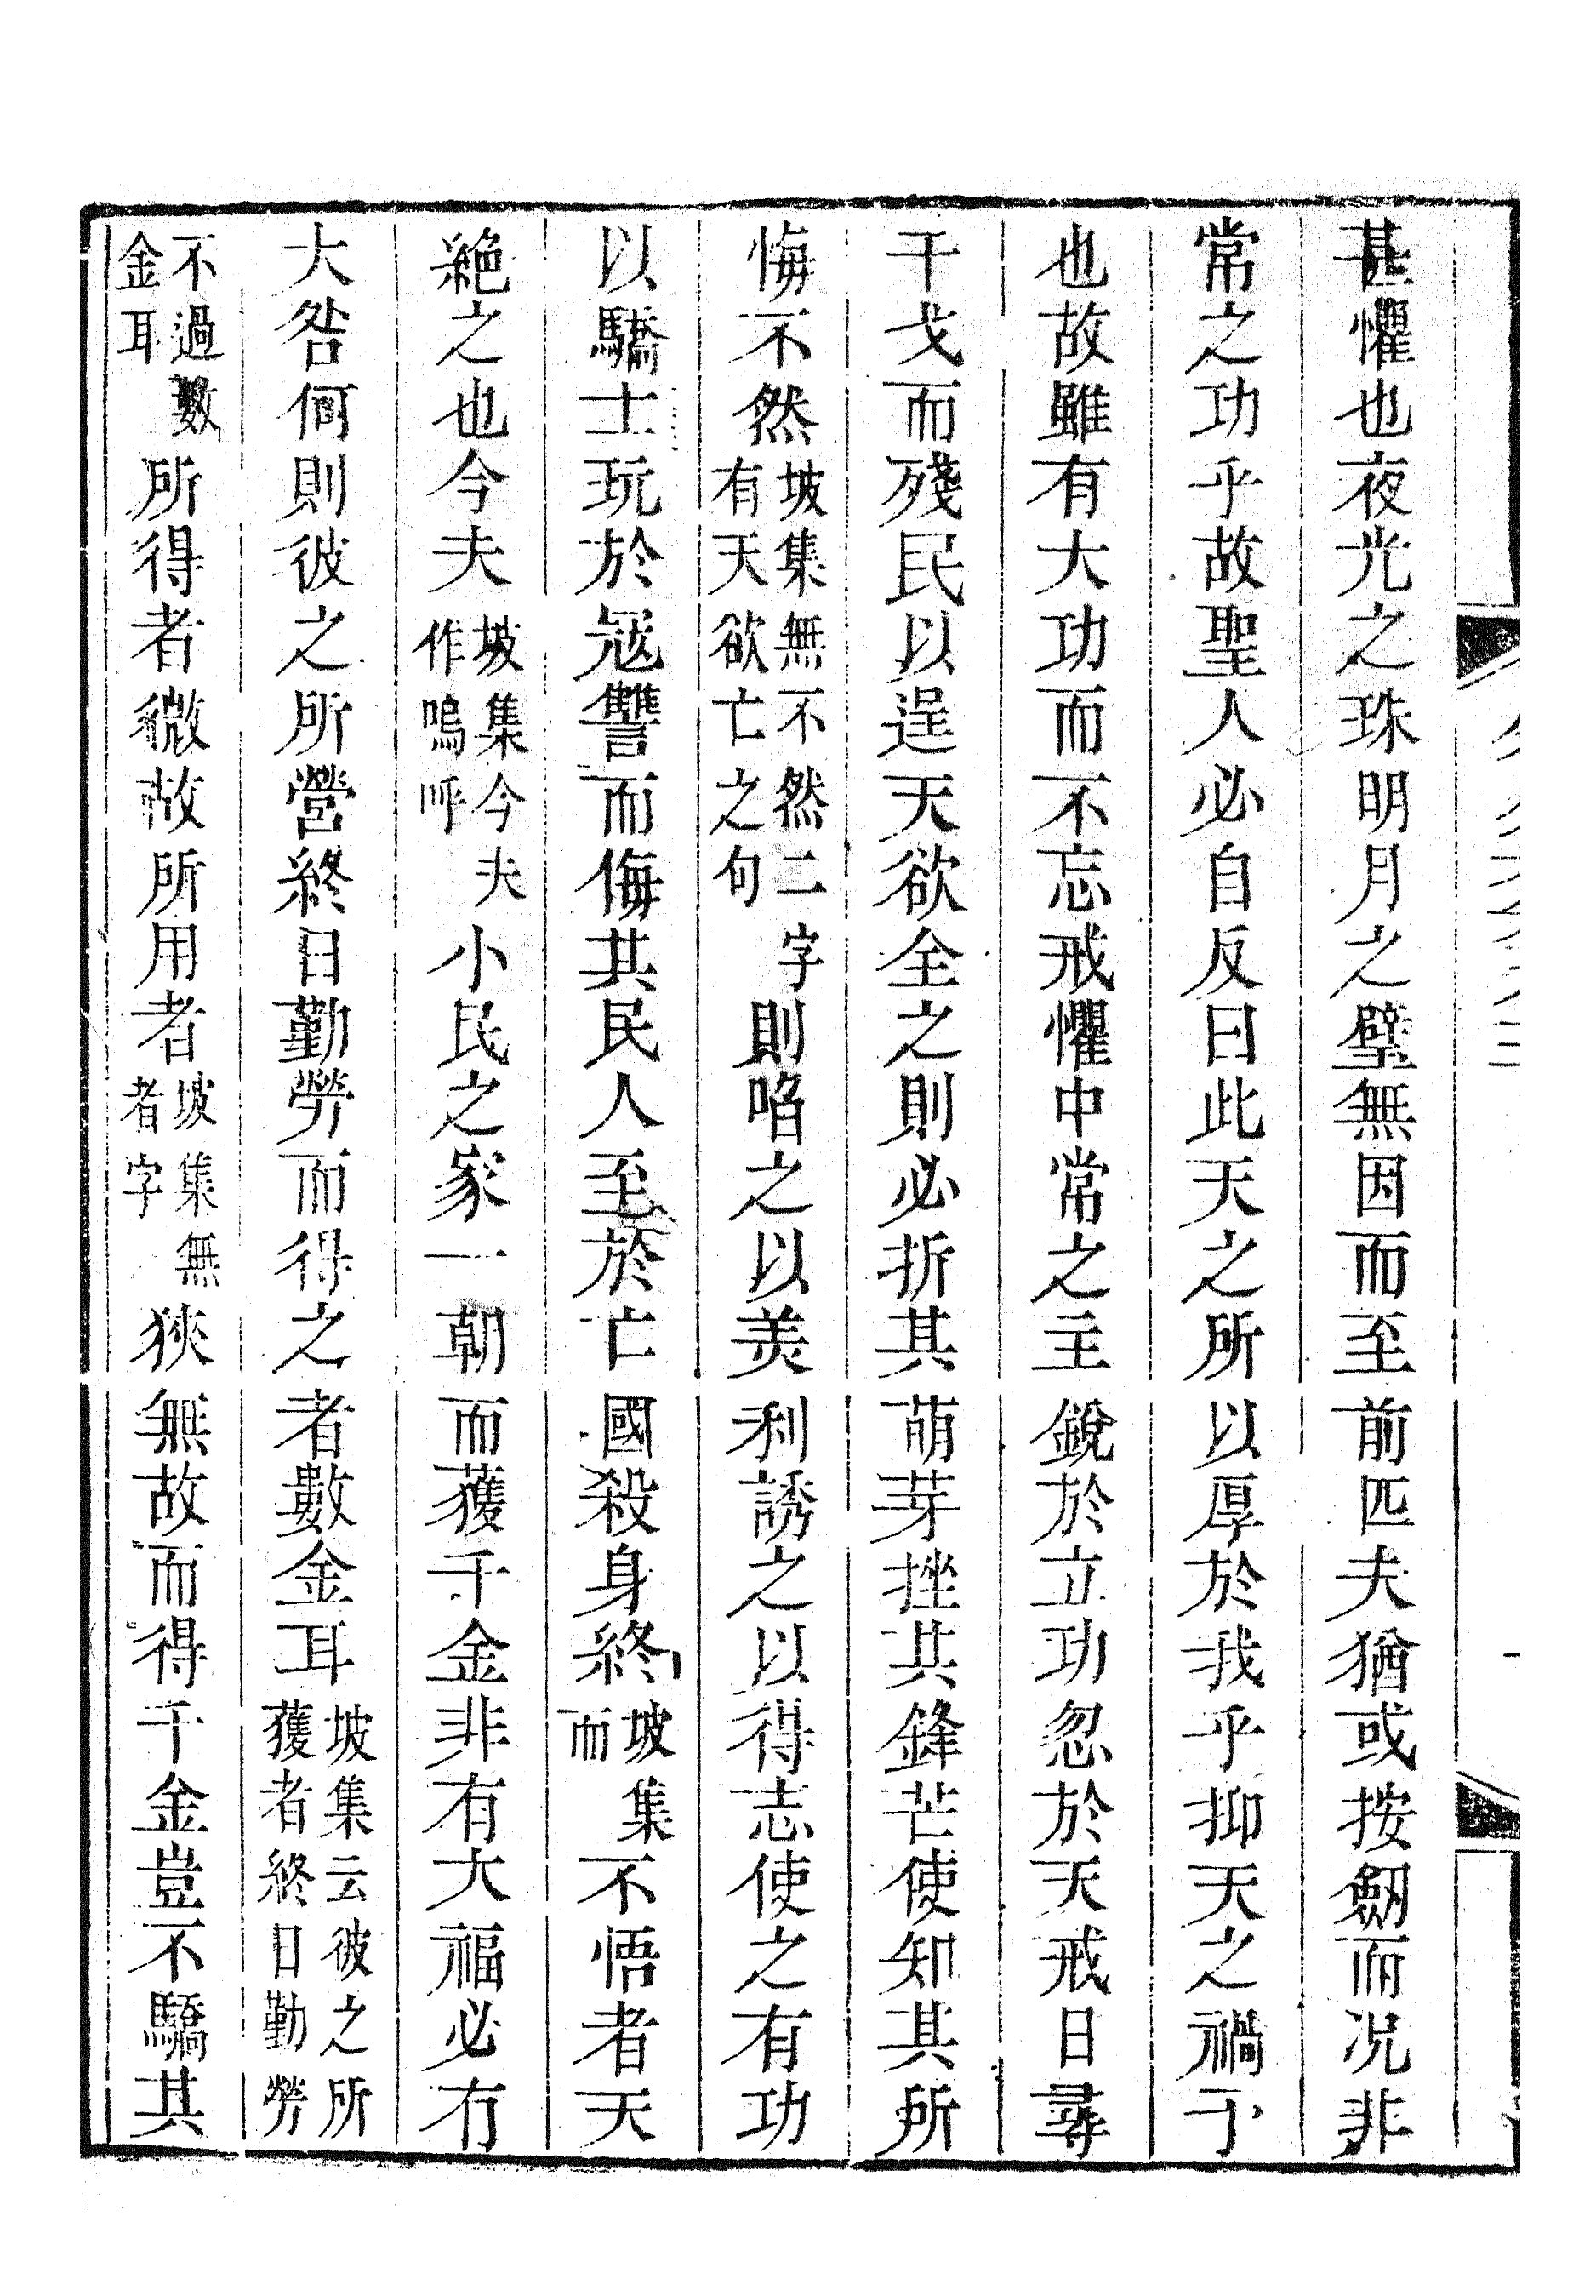 甚懼也夜光之珠明月之璧無因而至前匹夫猶或按劔而况非
常之功乎故聖人必自反曰此天之所以厚於我乎抑天之禍予
也故雖有大功而不忘戒懼中常之主銳於立功忽於天戒日尋
干戈而殘民以逞天欲全之則必折其萌芽挫其鋒芒使知其所
悔不然坡集無不然二字有天欲亡之句則啗之以美利誘之以得志使之有功
以驕士玩於寇讐而侮其民人至於亡國殺身終坡集而不悟者天
絕之也今夫坡集今夫作嗚呼小民之家一朝而獲千金非有大福必有
大咎何則彼之所營終日勤勞而得之者數金耳坡集云彼之所獲者終日勤勞
不過數金耳所得者微故所用者坡集無者字狹無故而得千金豈不驕其